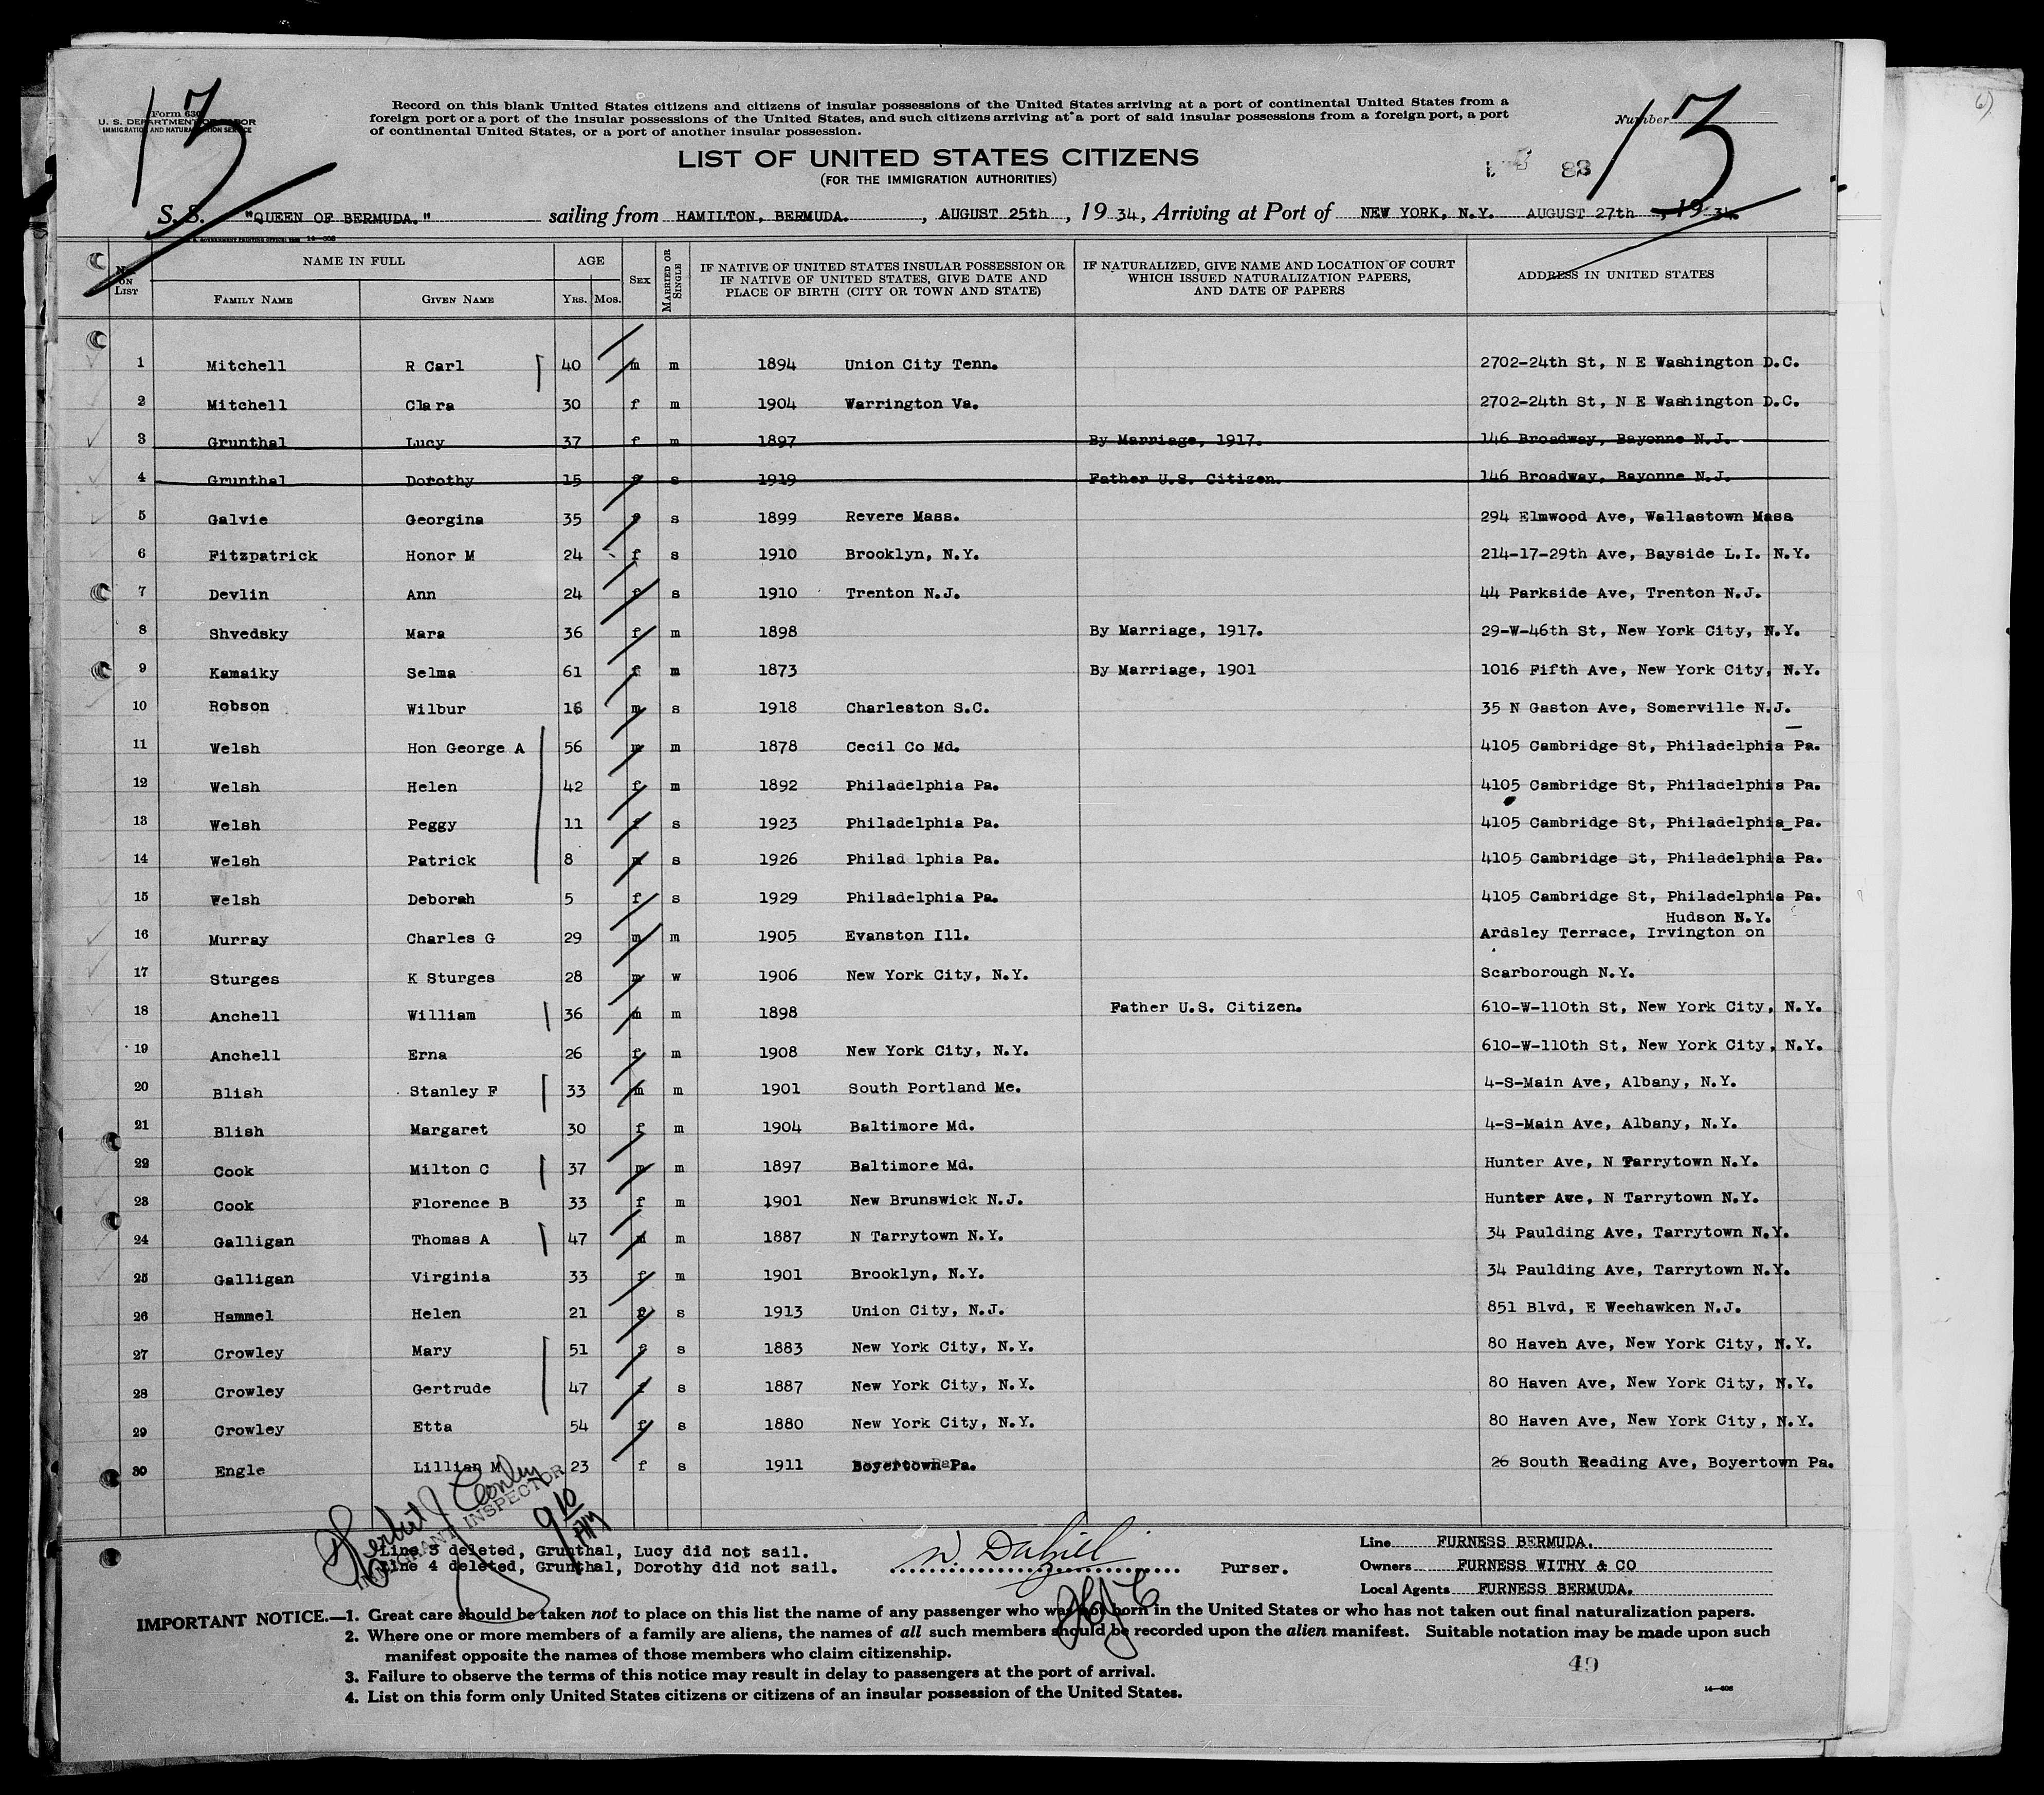 13
Form 630
U. S. DEPARTMENT OF LABOR
IMMIGRATION AND NATURALIZATION SERVICE
Record on this blank United States citizens and citizens of insular possessions of the United States arriving at a port of continental United States from a
foreign port or a port of the insular possessions of the United States, and such citizens arriving at a port of said insular possessions from a foreign port, a port
of continental United States, or a port of another insular possession.
Number 13
LIST OF UNITED STATES CITIZENS
(FOR THE IMMIGRATION AUTHORITIES)
S. S. "QUEEN OF BERMUDA." sailing from HAMILTON, BERMUDA. , AUGUST 25th , 19 34, Arriving at Port of NEW YORK, N.Y. AUGUST 27th , 19 34.
No. on List NAME IN FULL AGE SEX MARRIED OR SINGLE IF NATIVE OF UNITED STATES INSULAR POSSESSION OR IF NATIVE OF UNITED STATES, GIVE DATE AND PLACE OF BIRTH (CITY OR TOWN AND STATE) IF NATURALIZED, GIVE NAME AND LOCATION OF COURT WHICH ISSUED NATURALIZATION PAPERS, AND DATE OF PAPERS ADDRESS IN UNITED STATES
FAMILY NAME GIVEN NAME YRS. MOS.
1 Mitchell R Carl 40 m m 1894 Union City Tenn. 2702-24th St, N E Washington D.C.
2 Mitchell Clara 30 f m 1904 Warrington Va. 2702-24th St, N E Washington D.C.
3 Grunthal Lucy 37 f m 1897 By Marriage, 1917. 146 Broadway, Bayonne N.J.
4 Grunthal Dorothy 15 f s 1919 Father U.S. Citizen. 146 Broadway, Bayonne N.J.
5 Galvie Georgina 35 f s 1899 Revere Mass. 294 Elmwood Ave, Wallastown Mass
6 Fitzpatrick Honor M 24 f s 1910 Brooklyn, N.Y. 214-17-29th Ave, Bayside L.I. N.Y.
7 Devlin Ann 24 f s 1910 Trenton N.J. 44 Parkside Ave, Trenton N.J.
8 Shvedsky Mara 36 f m 1898 By Marriage, 1917. 29-W-46th St, New York City, N.Y.
9 Kamaiky Selma 61 f m 1873 By Marriage, 1901 1016 Fifth Ave, New York City, N.Y.
10 Robson Wilbur 16 m s 1918 Charleston S.C. 35 N Gaston Ave, Somerville N.J.
11 Welsh Hon George A 56 m m 1878 Cecil Co Md. 4105 Cambridge St, Philadelphia Pa.
12 Welsh Helen 42 f m 1892 Philadelphia Pa. 4105 Cambridge St, Philadelphia Pa.
13 Welsh Peggy 11 f s 1923 Philadelphia Pa. 4105 Cambridge St, Philadelphia Pa.
14 Welsh Patrick 8 m s 1926 Philad lphia Pa. 4105 Cambridge St, Philadelphia Pa.
15 Welsh Deborah 5 f s 1929 Philadelphia Pa. 4105 Cambridge St, Philadelphia Pa.
Hudson N.Y.
16 Murray Charles G 29 m m 1905 Evanston Ill. Ardsley Terrace, Irvington on
17 Sturges K Sturges 28 m w 1906 New York City, N.Y. Scarborough N.Y.
18 Anchell William 36 m m 1898 Father U.S. Citizen. 610-W-110th St, New York City, N.Y.
19 Anchell Erna 26 f m 1908 New York City, N.Y. 610-W-110th St, New York City, N.Y.
20 Blish Stanley F 33 m m 1901 South Portland Me. 4-S-Main Ave, Albany, N.Y.
21 Blish Margaret 30 f m 1904 Baltimore Md. 4-S-Main Ave, Albany, N.Y.
22 Cook Milton C 37 m m 1897 Baltimore Md. Hunter Ave, N Tarrytown N.Y.
23 Cook Florence B 33 f m 1901 New Brunswick N.J. Hunter Ave, N Tarrytown N.Y.
24 Galligan Thomas A 47 m m 1887 N Tarrytown N.Y. 34 Paulding Ave, Tarrytown N.Y.
25 Galligan Virginia 33 f m 1901 Brooklyn, N.Y. 34 Paulding Ave, Tarrytown N.Y.
26 Hammel Helen 21 f s 1913 Union City, N.J. 851 Blvd, E Weehawken N.J.
27 Crowley Mary 51 f s 1883 New York City, N.Y. 80 Haven Ave, New York City, N.Y.
28 Crowley Gertrude 47 f s 1887 New York City, N.Y. 80 Haven Ave, New York City, N.Y.
29 Crowley Etta 54 f s 1880 New York City, N.Y. 80 Haven Ave, New York City, N.Y.
30 Engle Lillian M 23 f s 1911 Boyertown Pa. 26 South Reading Ave, Boyertown Pa.
IMMIGRANT INSPECTOR
Line 3 deleted, Grunthal, Lucy did not sail.
Line 4 deleted, Grunthal, Dorothy did not sail.
Purser.
Line FURNESS BERMUDA.
Owners FURNESS WITHY & CO
Local Agents FURNESS BERMUDA.
IMPORTANT NOTICE.—1. Great care should be taken not to place on this list the name of any passenger who was not born in the United States or who has not taken out final naturalization papers.
2. Where one or more members of a family are aliens, the names of all such members should be recorded upon the alien manifest. Suitable notation may be made upon such
manifest opposite the names of those members who claim citizenship.
3. Failure to observe the terms of this notice may result in delay to passengers at the port of arrival.
4. List on this form only United States citizens or citizens of an insular possession of the United States.
49
14—608